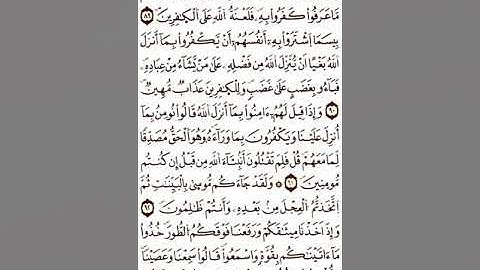 مَّا عَرَفُواْ كَفَرُواْ بِهِۦ فَلَعْنَةُ اُ۬للَّهِ عَلَى اَ۬لْكٰ۪فِرِينَۖ ٨٩
بِيسَمَا اَ۪شْتَرَوْاْ بِهِۦٓ أَنفُسَهُمُۥٓ أَنْ يَّكْفُرُواْ بِمَآ أَنزَلَ
اَ۬للَّهُ بَغْياً اَنْ يُّنَزِّلَ اَ۬للَّهُ مِن فَضْلِهِۦ عَلَىٰ مَنْ يَّشَآءُ مِنْ عِبَادِهِۦ
فَبَآءُو بِغَضَبٍ عَلَىٰ غَضَبٍ وَلِلْكٰ۪فِرِينَ عَذَابٌ مُّهِينٌۖ ٩٠
وَإِذَا قِيلَ لَهُمُۥٓ ءَامِنُواْ بِمَآ أَنزَلَ اَ۬للَّهُ قَالُواْ نُومِنُ بِمَآ
أُنزِلَ عَلَيْنَا وَيَكْفُرُونَ بِمَا وَرَآءَهُۥ وَهُوَ اَ۬لْحَقُّ مُصَدِّقاً
لِّمَا مَعَهُمْ قُلْ فَلِمَ تَقْتُلُونَ أَنۢبِئَآءَ اَ۬للَّهِ مِن قَبْلُ إِن كُنتُم
مُّومِنِينَۖ ٩١ ۞ وَلَقَدْ جَآءَكُم مُّوسَىٰ بِالْبَيِّنَٰتِ ثُمَّ
اَ۪تَّخَذتُّمُ اُ۬لْعِجْلَ مِنۢ بَعْدِهِۦ وَأَنتُمْ ظَٰلِمُونَۖ ٩٢
وَإِذَ اَخَذْنَا مِيثَٰقَكُمْ وَرَفَعْنَا فَوْقَكُمُ اُ۬لطُّورَ خُذُواْ
مَآ ءَاتَيْنَٰكُم بِقُوَّةٍ وَاسْمَعُواْ قَالُواْ سَمِعْنَا وَعَصَيْنَا